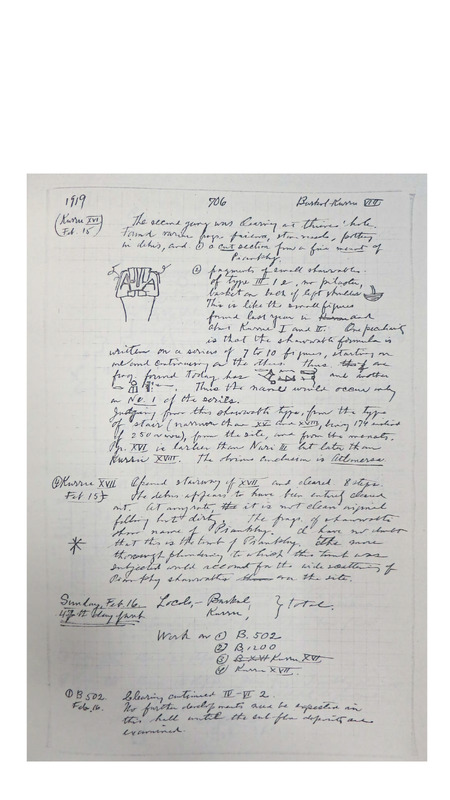 1919 706 Barkal-Kurru VII
(Kurru XVI) The second gang was clearing at thieves' hole.
Feb. 15) Found various frags. faience, stone vessels, pottery
in debris, and ① a cut section from a fine menat of
Piankhy.
② fragments of small shawabtis
of type III 12, no pilaster,
basket on back of left shoulder
This is like the small figures
found last year in and
also Kurru I and II. One peculiarity
is that the shawabti formula is
written on a series of 7 to 10 figures, starting on
one and continuing on the others. Thus, the
frag. found today has and another
Thus the name would occur only
on No. 1 of the series.
Judging from this shawabti type, from the type
of stair (narrower than XV and XVIII, being 174 instead
of 250 or over), from the site, and from the menats,
Pyr. XVI is earlier than Nuri II but later than
Kurru XVIII. The obvious conclusion is
② Kurru XVII Opened stairway of XVII and cleared 8 steps.
Feb 15 The debris appears to have been entirely cleared
out. At any rate, it is not clean original
filling but dirt. The frags. of shawabtis
show name of Piankhy. I have no doubt
that this is the tomb of Piankhy. The more
thorough plundering to which this tomb was
subjected would account for the wide scattering of
Piankhy shawabtis over the site.
Sunday, Feb. 16 Locals, - Barkal
47th day of work Kurru, } total,
Work on ① B. 502
② B. 1200
③ B XVI Kurru XVI
④ Kurru XVII
① B 502 Clearing continued IV-VI 2.
Feb. 16. No further developments can be expected in
this hall until the sub-floor deposits are
examined.